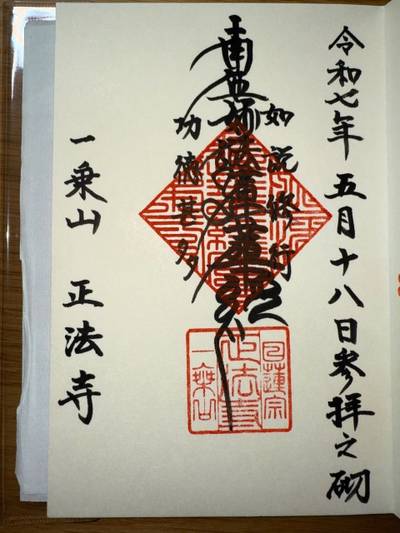 令和七年五月十八日参拝之砌
如説修行
南無妙法蓮華経
功徳甚多
一乗山 正法寺
日蓮宗
正法寺
一乗山